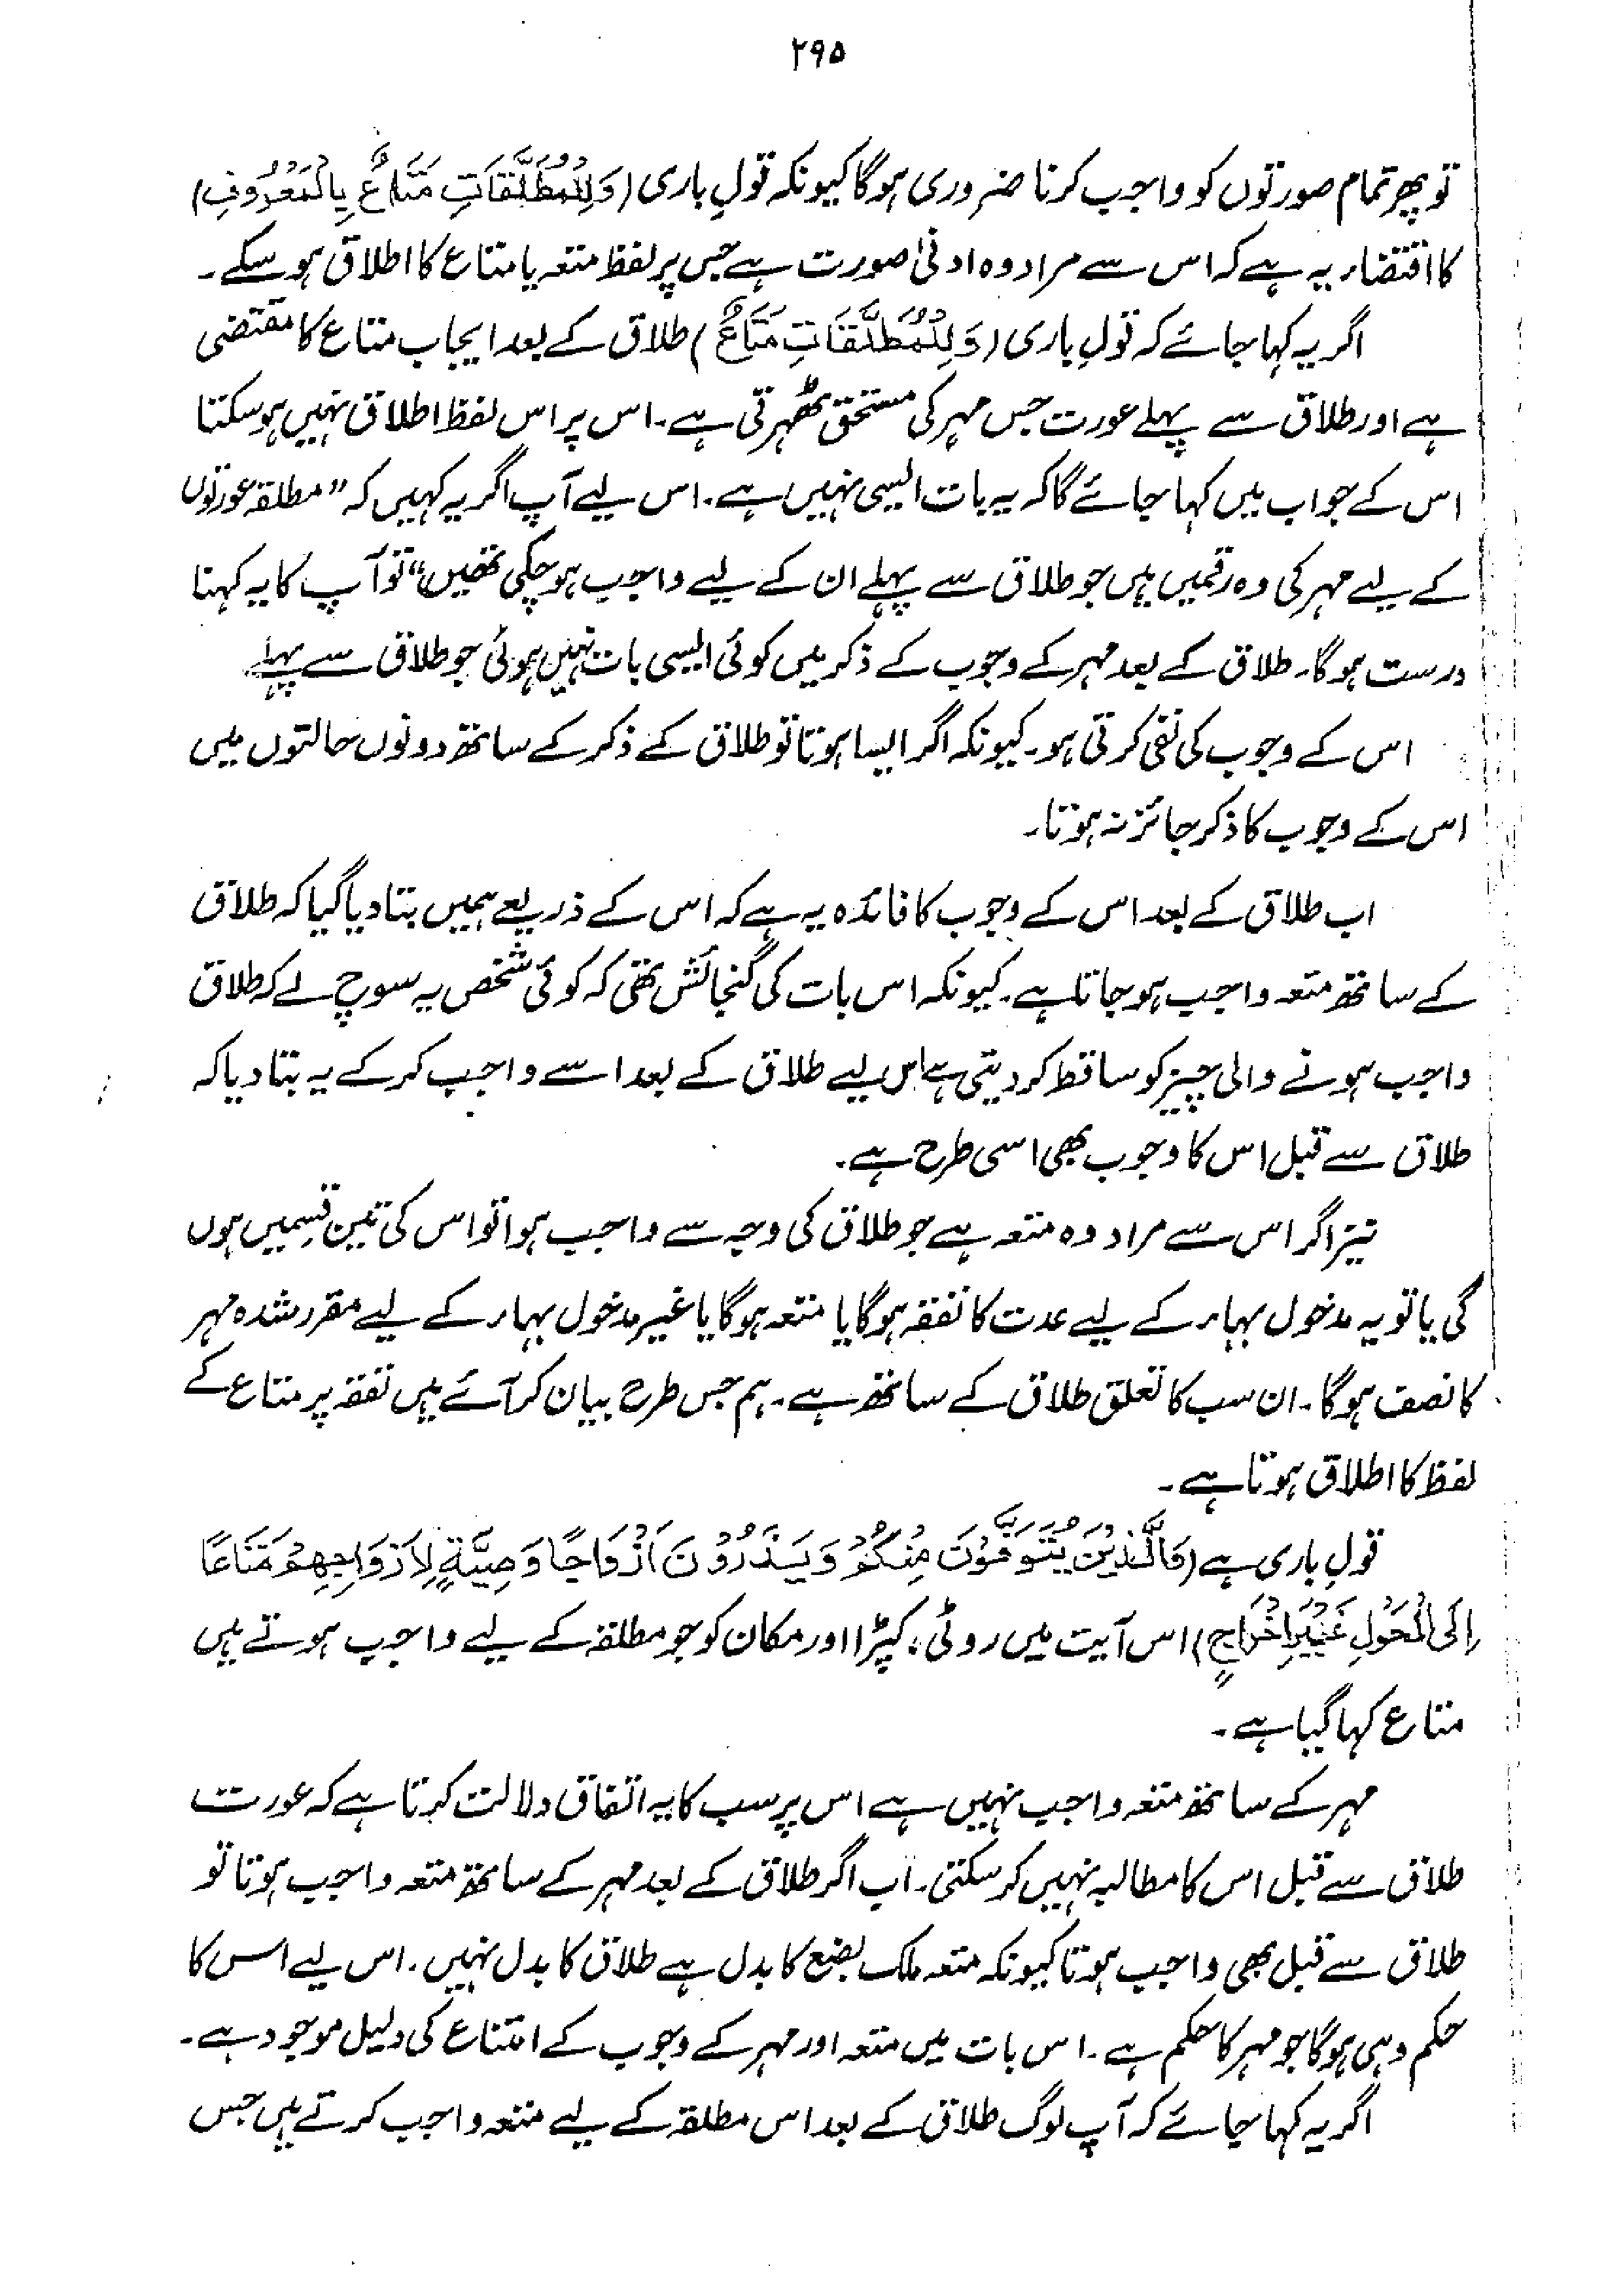 ۲۹۵
تو پھر تمام صورتوں کو واجب کرنا ضروری ہوگا کیونکہ قولِ باری (وَلِلْمُطَلَّقَاتِ مَتَاعٌ بِالْمَعْرُوفِ)
کا اقتضاء یہ ہے کہ اس سے مراد وہ ادنیٰ صورت ہے جس پر لفظ متعہ یا متاع کا اطلاق ہو سکے۔
اگر یہ کہا جائے کہ قولِ باری (وَلِلْمُطَلَّقَاتِ مَتَاعٌ) طلاق کے بعد ایجاب متاع کا مقتضی
ہے اور طلاق سے پہلے عورت جس مہر کی مستحق ٹھہرتی ہے۔ اس پر اس لفظ اطلاق نہیں ہو سکتا
اس کے جواب میں کہا جائے گا کہ یہ بات ایسی نہیں ہے۔ اس لیے آپ اگر یہ کہیں کہ "مطلقہ عورتوں
کے لیے مہر کی وہ رقمیں ہیں جو طلاق سے پہلے ان کے لیے واجب ہو چکی تھیں" تو آپ کا یہ کہنا
درست ہوگا۔ طلاق کے بعد مہر کے وجوب کے ذکر میں کوئی ایسی بات نہیں ہوئی جو طلاق سے پہلے
اس کے وجوب کی نفی کرتی ہو۔ کیونکہ اگر ایسا ہوتا تو طلاق کے ذکر کے ساتھ دونوں حالتوں میں
اس کے وجوب کا ذکر جائز نہ ہوتا۔
اب طلاق کے بعد اس کے وجوب کا فائدہ یہ ہے کہ اس کے ذریعے ہمیں بتا دیا گیا کہ طلاق
کے ساتھ متعہ واجب ہو جاتا ہے۔ کیونکہ اس بات کی گنجائش تھی کہ کوئی شخص یہ سوچ لے کہ طلاق
واجب ہونے والی چیز کو ساقط کر دیتی ہے اس لیے طلاق کے بعد اسے واجب کر کے یہ بتا دیا کہ
طلاق سے قبل اس کا وجوب بھی اسی طرح ہے۔
نیز اگر اس سے مراد وہ متعہ ہے جو طلاق کی وجہ سے واجب ہوا تو اس کی تین قسمیں ہوں
گی یا تو یہ مدخول بہاء کے لیے عدت کا نفقہ ہوگا یا متعہ ہوگا یا غیر مدخول بہاء کے لیے مقرر شدہ مہر
کا نصف ہوگا۔ ان سب کا تعلق طلاق کے ساتھ ہے۔ ہم جس طرح بیان کر آئے ہیں نفقہ پر متاع کے
لفظ کا اطلاق ہوتا ہے۔
قولِ باری ہے (وَالَّذِیْنَ یُتَوَفَّوْنَ مِنْکُمْ وَیَذَرُوْنَ اَزْوَاجًا وَصِیَّۃً لِاَزْوَاجِھِمْ مَتَاعًا
اِلَی الْحَوْلِ غَیْرَ اِخْرَاجٍ) اس آیت میں روٹی، کپڑا اور مکان کو جو مطلقہ کے لیے واجب ہوتے ہیں
متاع کہا گیا ہے۔
مہر کے ساتھ متعہ واجب نہیں ہے اس پر سب کا یہ اتفاق دلالت کرتا ہے کہ عورت
طلاق سے قبل اس کا مطالبہ نہیں کر سکتی۔ اب اگر طلاق کے بعد مہر کے ساتھ متعہ واجب ہوتا تو
طلاق سے قبل بھی واجب ہوتا کیونکہ متعہ ملک بضع کا بدل ہے طلاق کا بدل نہیں۔ اس لیے اس کا
حکم وہی ہوگا جو مہر کا حکم ہے۔ اس بات میں متعہ اور مہر کے وجوب کے امتناع کی دلیل موجود ہے۔
اگر یہ کہا جائے کہ آپ لوگ طلاق کے بعد اس مطلقہ کے لیے متعہ واجب کرتے ہیں جس